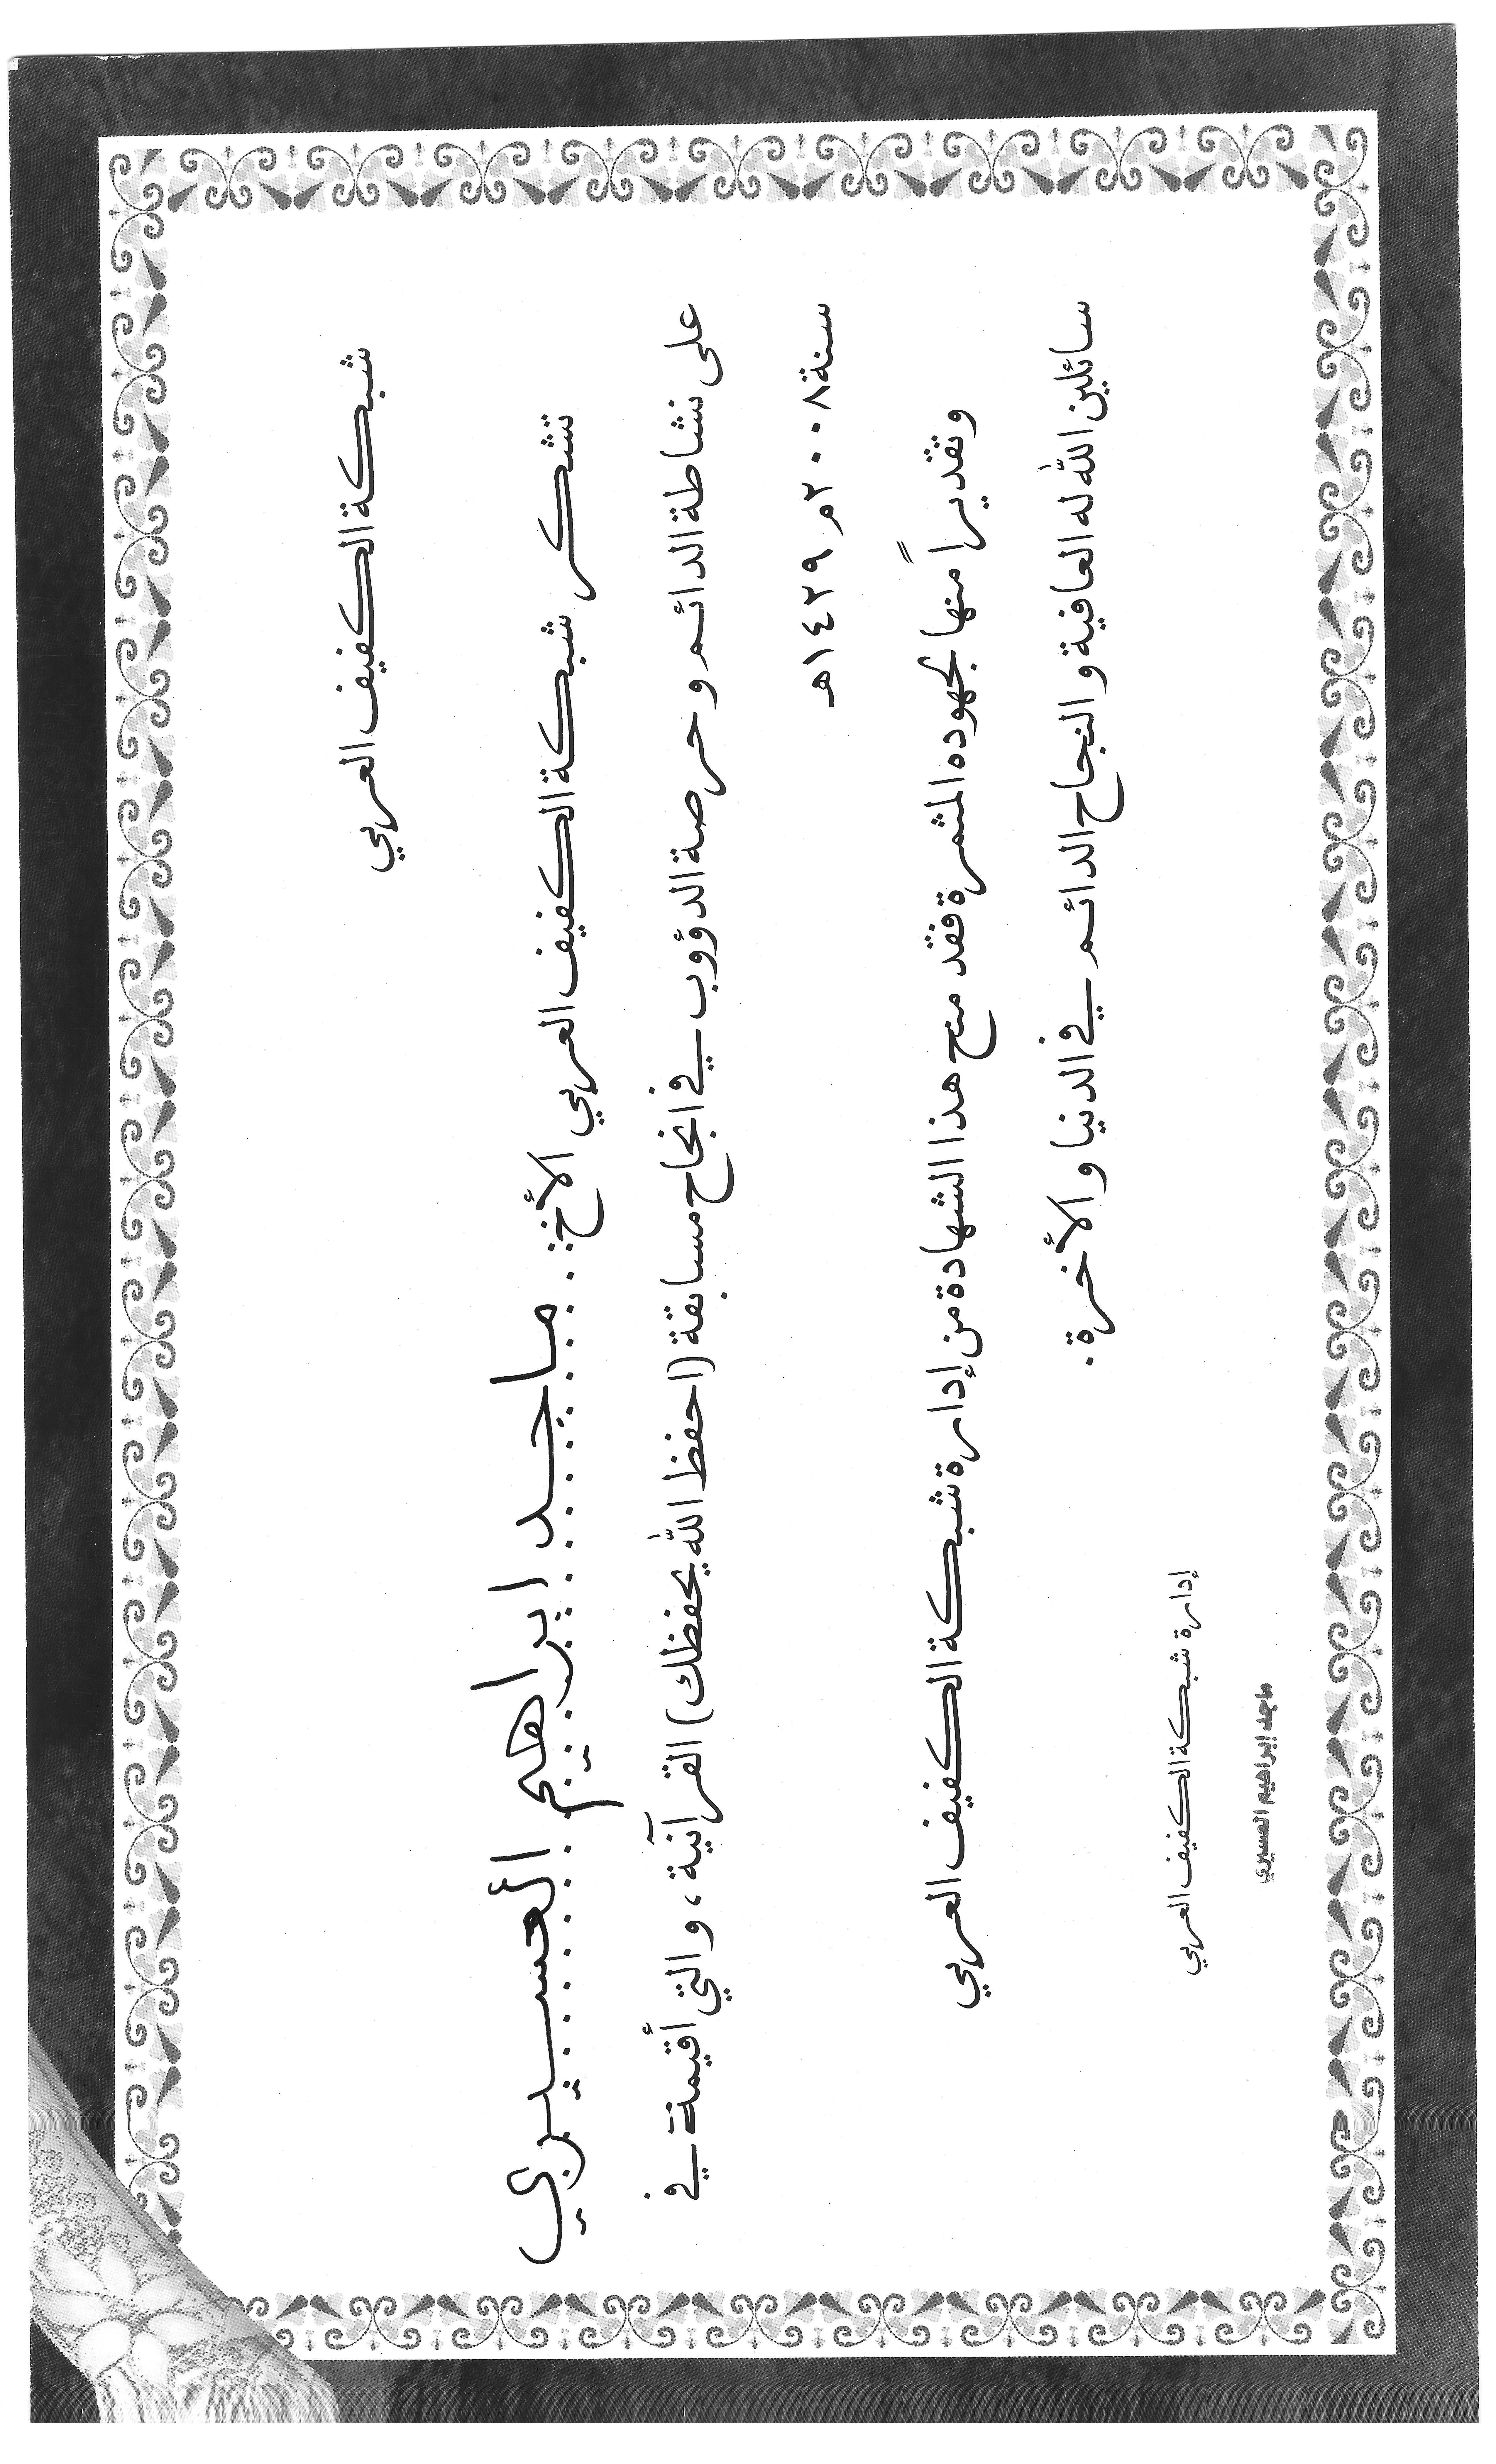 شبكة الكفيف العربي
تشكر شبكة الكفيف العربي الأخ: ماجد ابراهيم العسيري
على نشاطة الدائم و حرصة الدؤوب في انجاح مسابقة (احفظ الله يحفظك) القرآنية، والتي أقيمة في
سنة ٢٠٠٨م ١٤٢٩هـ
وتقديراً منها لجهوده المثمرة فقد منح هذا الشهادة من إدارة شبكة الكفيف العربي
سائلين الله له العافية و النجاح الدائم في الدنيا و الأخرة.
إدارة شبكة الكفيف العربي
ماجد إبراهيم العسيري